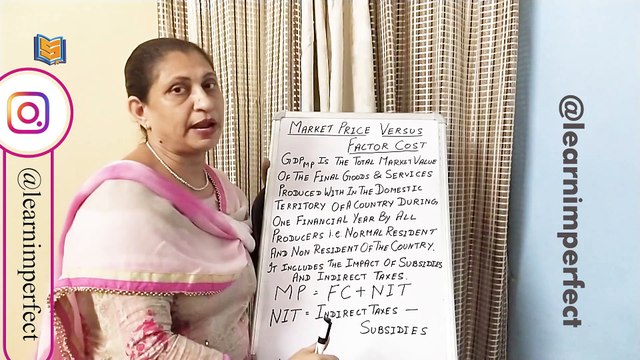 MARKET PRICE VERSUS
FACTOR COST
GDPMP IS THE TOTAL MARKET VALUE
OF THE FINAL GOODS & SERVICES
PRODUCED WITH IN THE DOMESTIC
TERRITORY OF A COUNTRY DURING
ONE FINANCIAL YEAR BY ALL
PRODUCERS i.e. NORMAL RESIDENT
AND NON RESIDENT OF THE COUNTRY.
IT INCLUDES THE IMPACT OF SUBSIDIES
AND INDIRECT TAXES.
MP = FC + NIT
NIT = INDIRECT TAXES –
SUBSIDIES
@learnimperfect
@learnimperfect